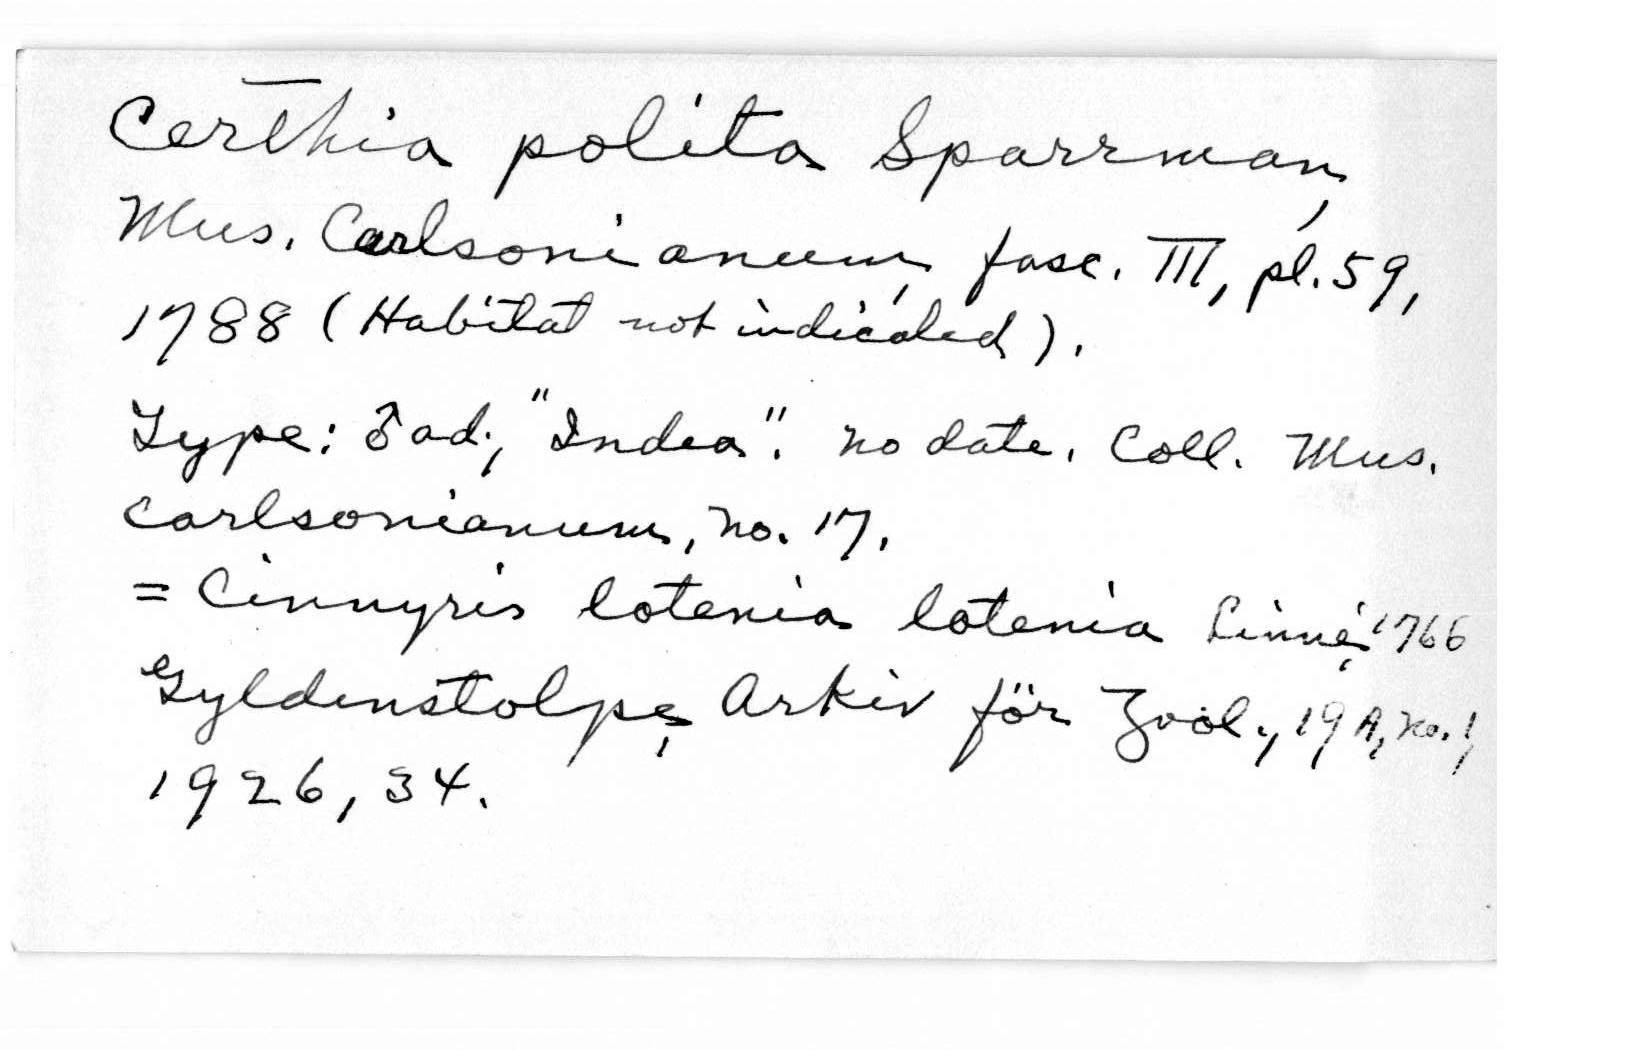 Certhia polita Sparrman,
Mus. Carlsonianum, fasc. III, pl. 59,
1788 (Habitat not indicated).
Type: ♂ ad., "India". No date. Coll. Mus.
Carlsonianum, No. 17.
= Cinnyris lotenia lotenia Linné, 1766
Gyldenstolpe, Arkiv för Zool., 19 A, No. 1,
1926, 34.